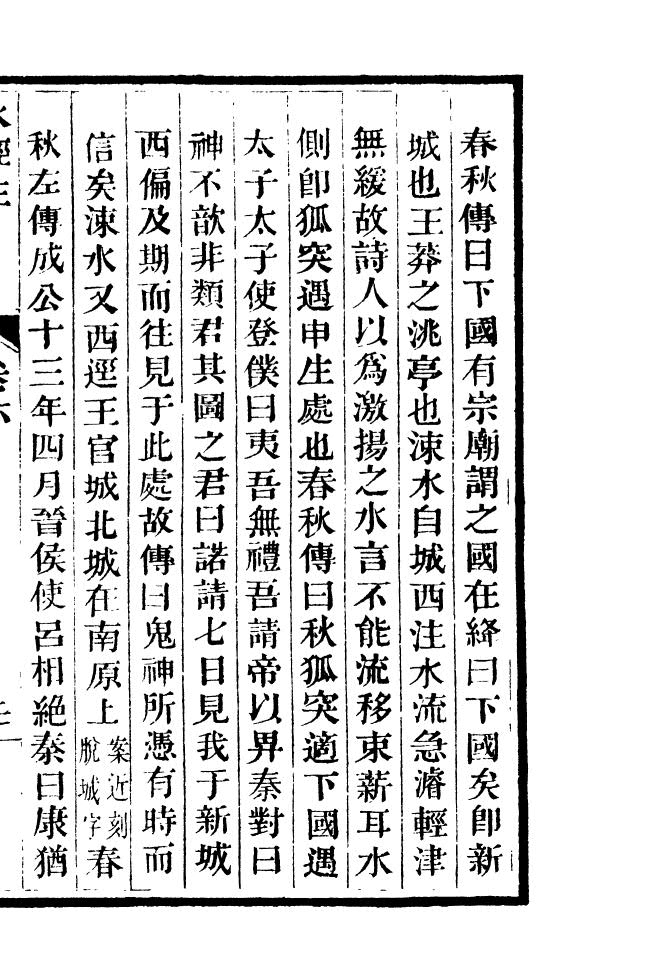 春秋傳曰下國有宗廟謂之國在絳曰下國矣卽新
城也王莽之洮亭也涑水自城西注水流急濬輕津
無緩故詩人以爲激揚之水言不能流移束薪耳水
側卽狐突遇申生處也春秋傳曰秋狐突適下國遇
太子太子使登僕曰夷吾無禮吾請帝以畀秦對曰
神不歆非類君其圖之君曰諾請七日見我于新城
西偏及期而往見于此處故傳曰鬼神所憑有時而
信矣涑水又西逕王官城北城在南原上案近刻脫城字春
秋左傳成公十三年四月晉侯使呂相絶秦曰康猶
水經注 卷六